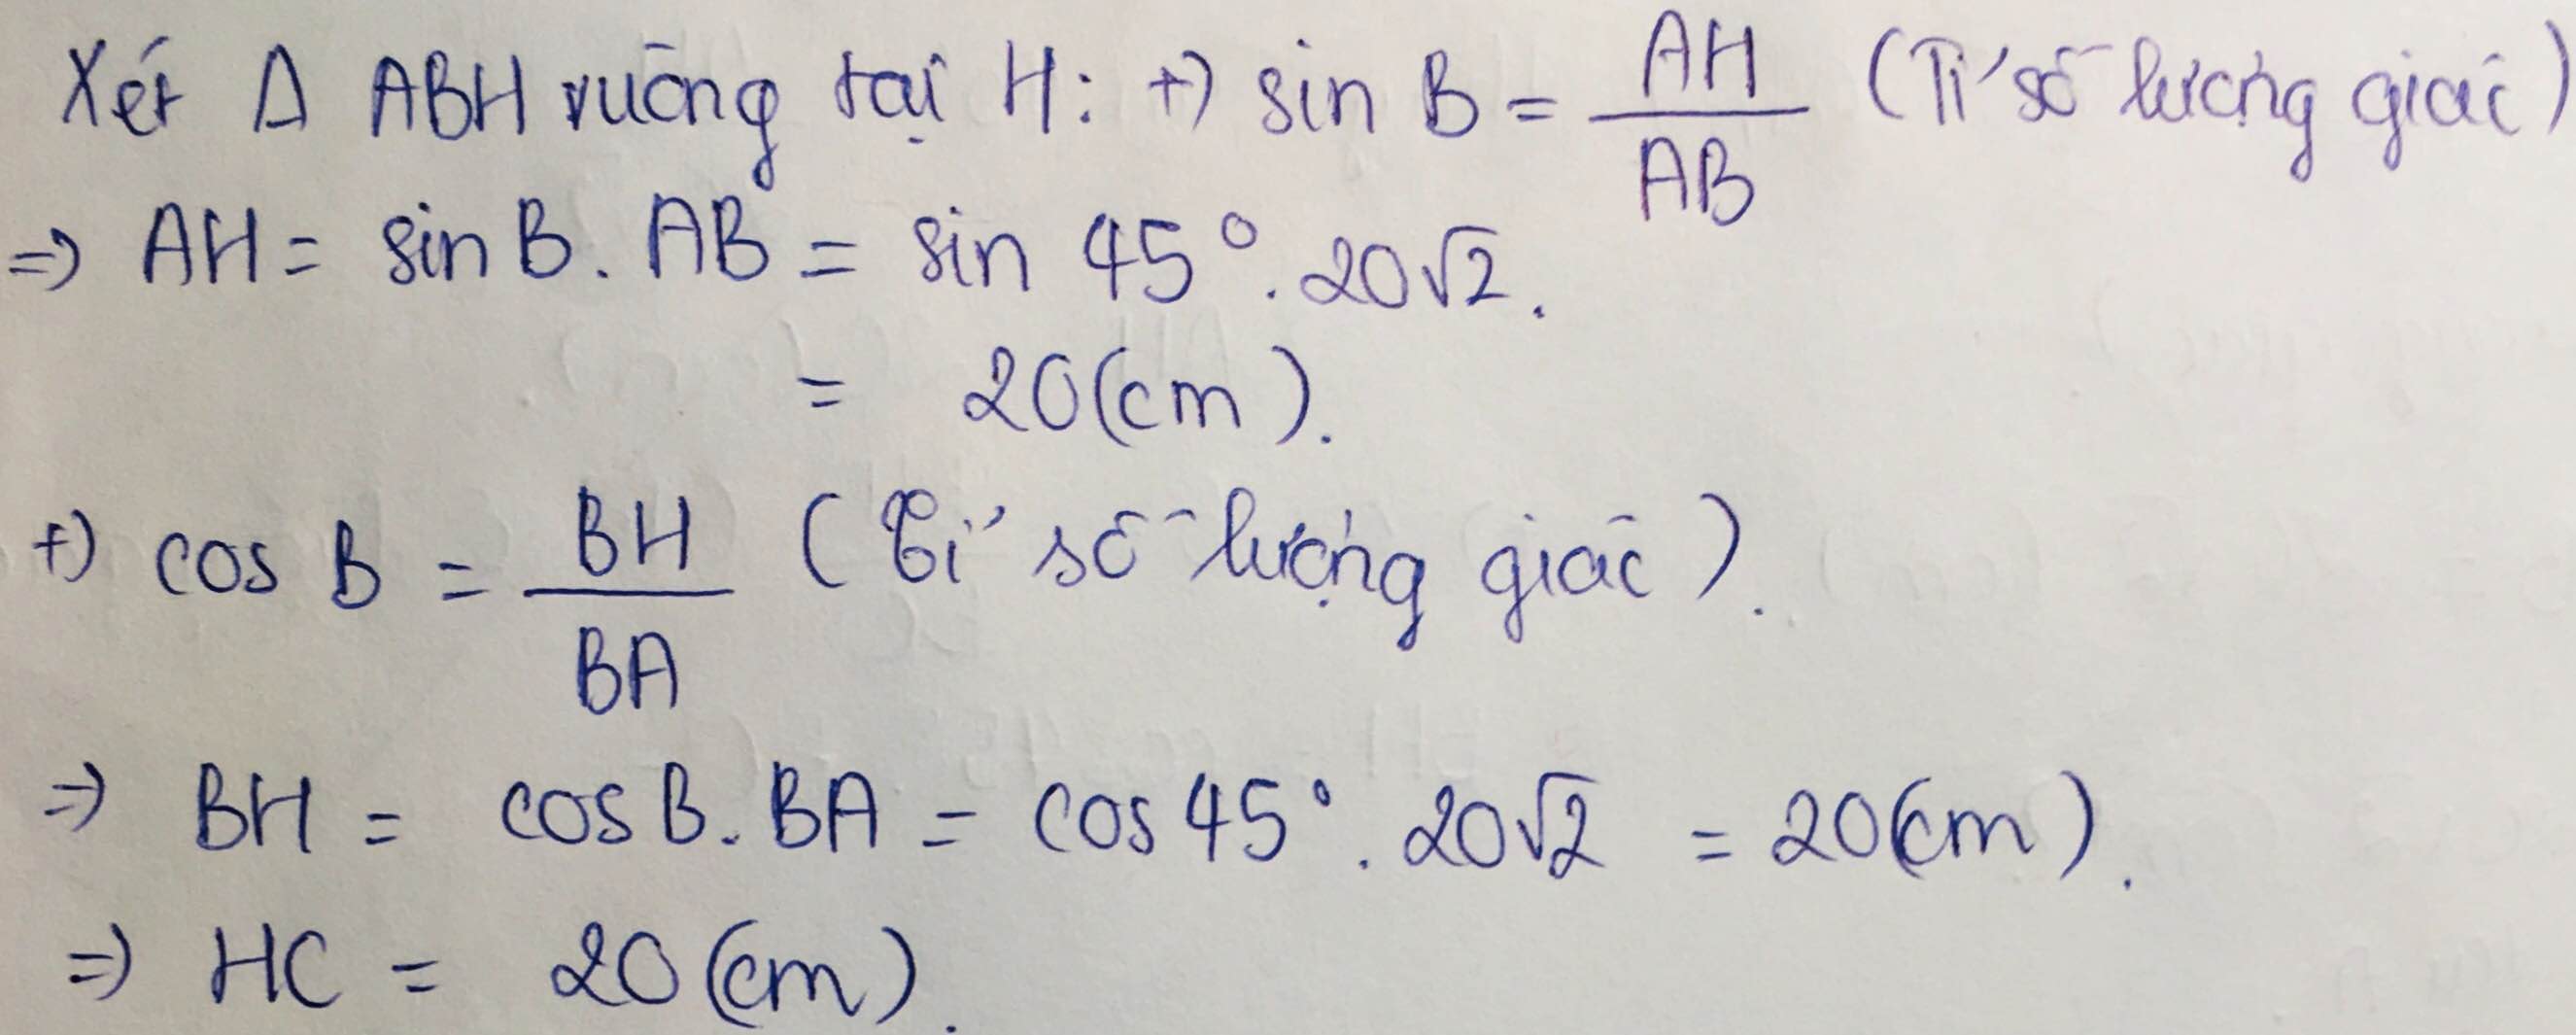 Xét Δ ABH vuông tại H: +) sin B = AH/AB (Tỉ số lượng giác)
=> AH = sin B. AB = sin 45°. 20√2.
= 20(cm).
+) cos B = BH/BA (Tỉ số lượng giác).
=> BH = cos B. BA = cos 45°. 20√2 = 20(cm).
=> HC = 20 (cm).